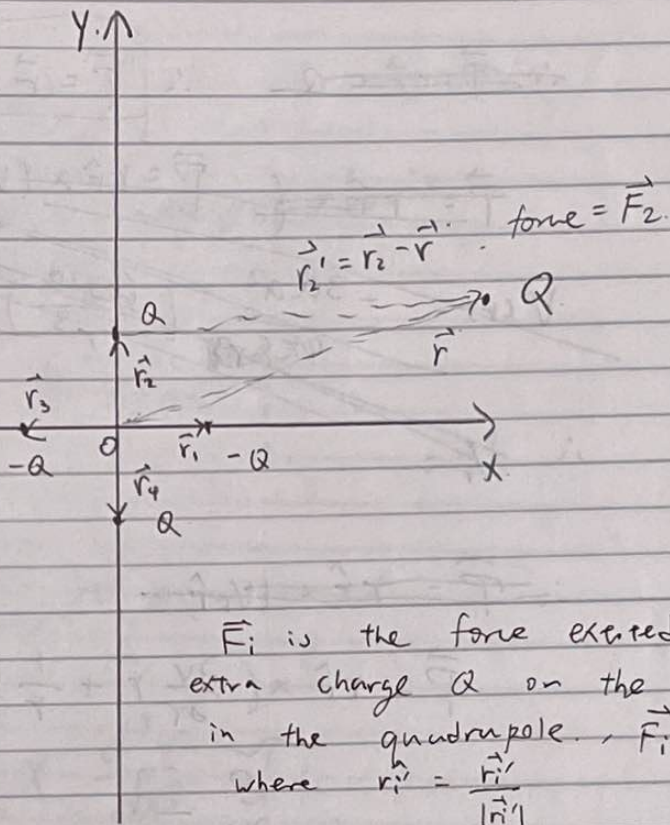 Y
force = F⃗₂.
r⃗₂' = r⃗₂ - r⃗
Q
Q
r⃗
r⃗₂
r⃗₃
O
r⃗₁
-Q
-Q
X
r⃗₄
Q
F⃗ᵢ is the force exerted
extra charge Q on the
in the quadrupole., F⃗ᵢ
where r̂ᵢ' = r⃗ᵢ' / |r⃗ᵢ'|